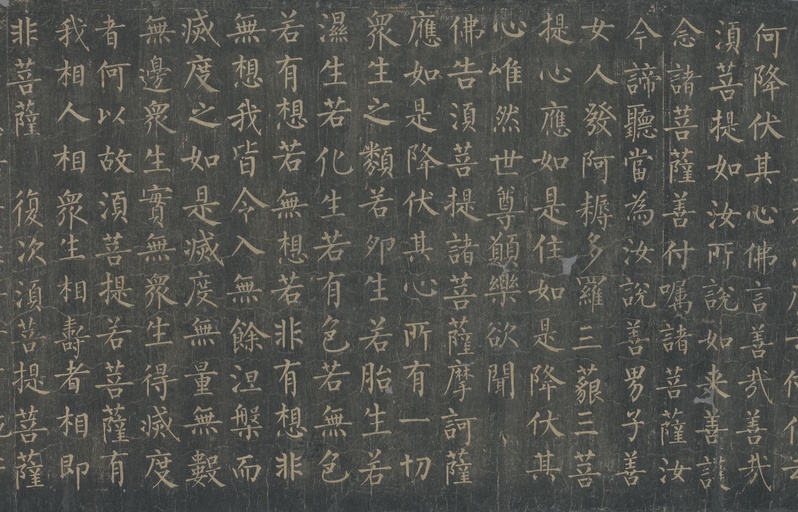 何降伏其心佛言善哉善哉
湏菩提如汝所說如来善護
念諸菩薩善付囑諸菩薩汝
今諦聽當為汝說善男子善
女人發阿耨多羅三藐三菩
提心應如是住如是降伏其
心唯然世尊願樂欲聞
佛告湏菩提諸菩薩摩訶薩
應如是降伏其心所有一切
衆生之類若卵生若胎生若
濕生若化生若有色若無色
若有想若無想若非有想非
無想我皆令入無餘涅槃而
滅度之如是滅度無量無數
無邊衆生實無衆生得滅度
者何以故湏菩提若菩薩有
我相人相衆生相壽者相即
非菩薩 復次湏菩提菩薩